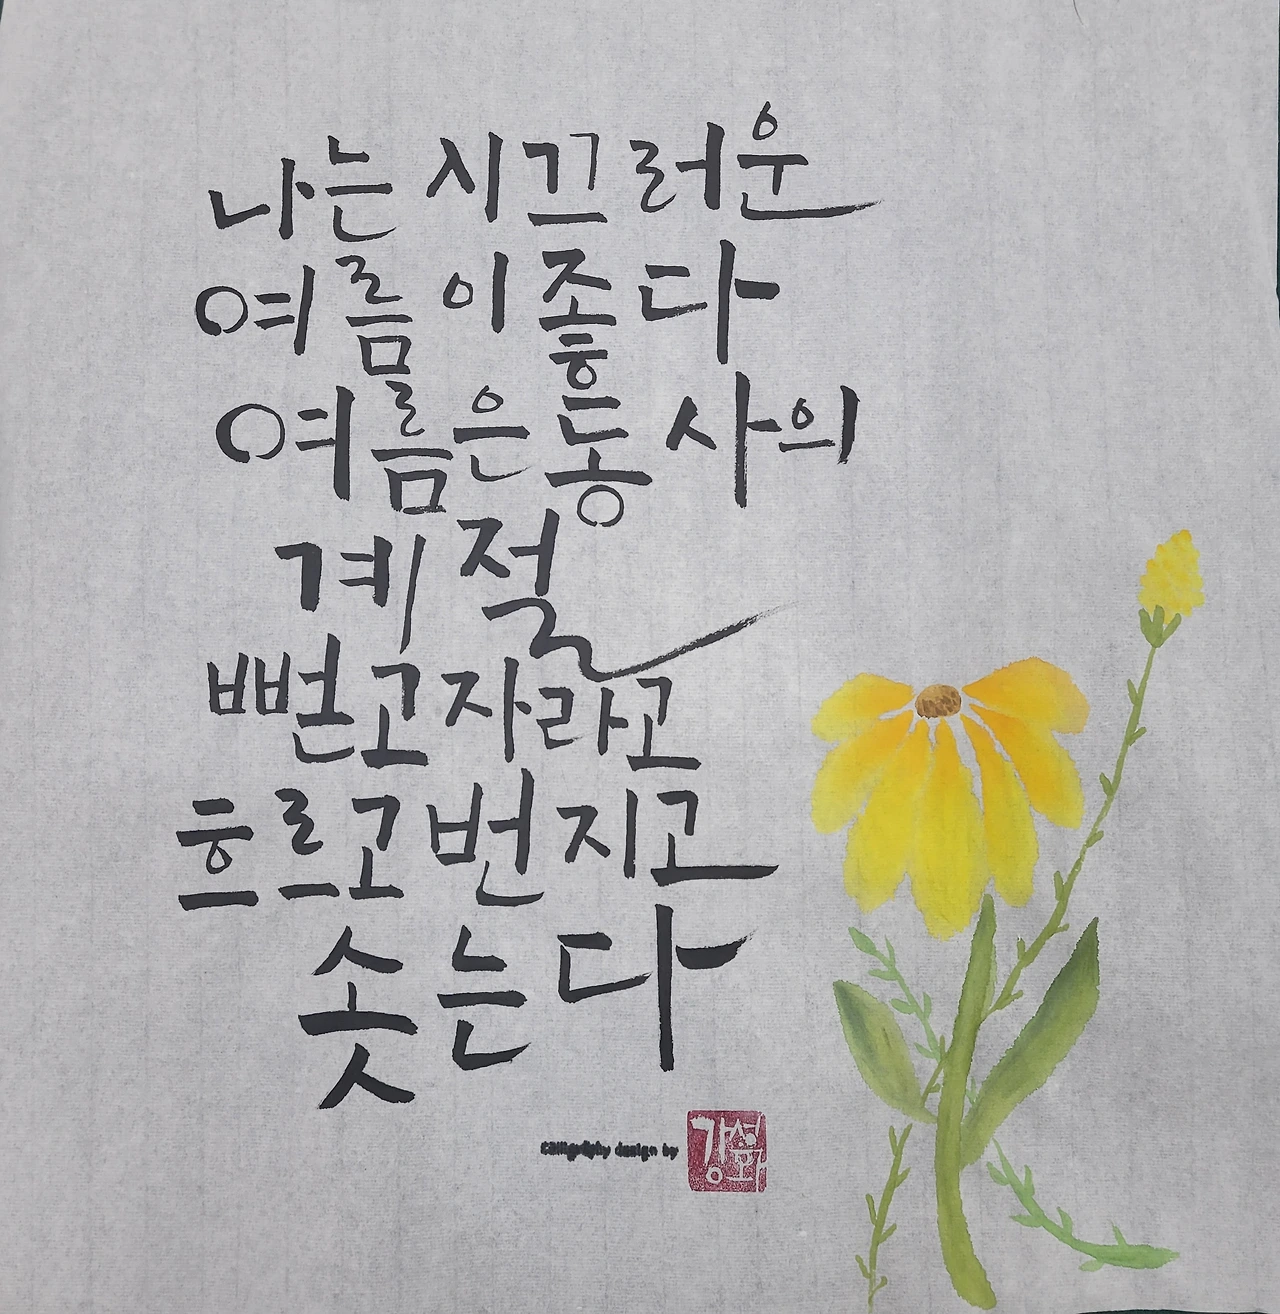 나는 시끄러운
여름이 좋다
여름은 동사의
계절
뻗고 자라고
흐르고 번지고
솟는다
calligraphy design by
강성화